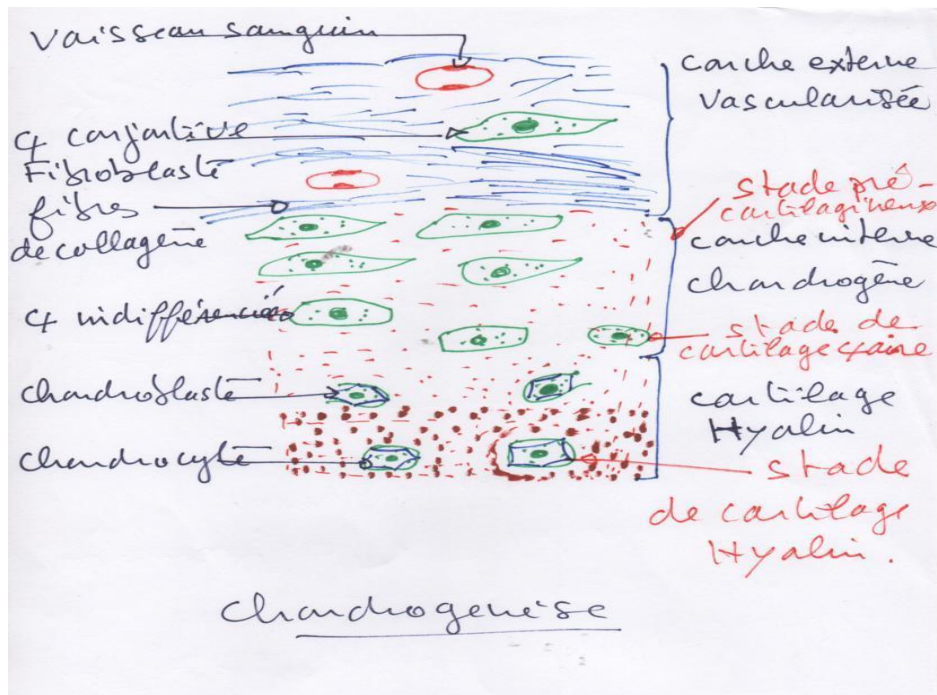 Vaisseau sanguin
couche externe
Vascularisée
4 conjonctive
Fibroblaste
fibres
de collagène
stade pré-
cartilagineux
couche interne
chondrogène
4 indifférenciée
stade de
cartilage 4aire
chondroblaste
cartilage
Hyalin
chondrocyte
stade
de cartilage
Hyalin.
Chondrogenèse